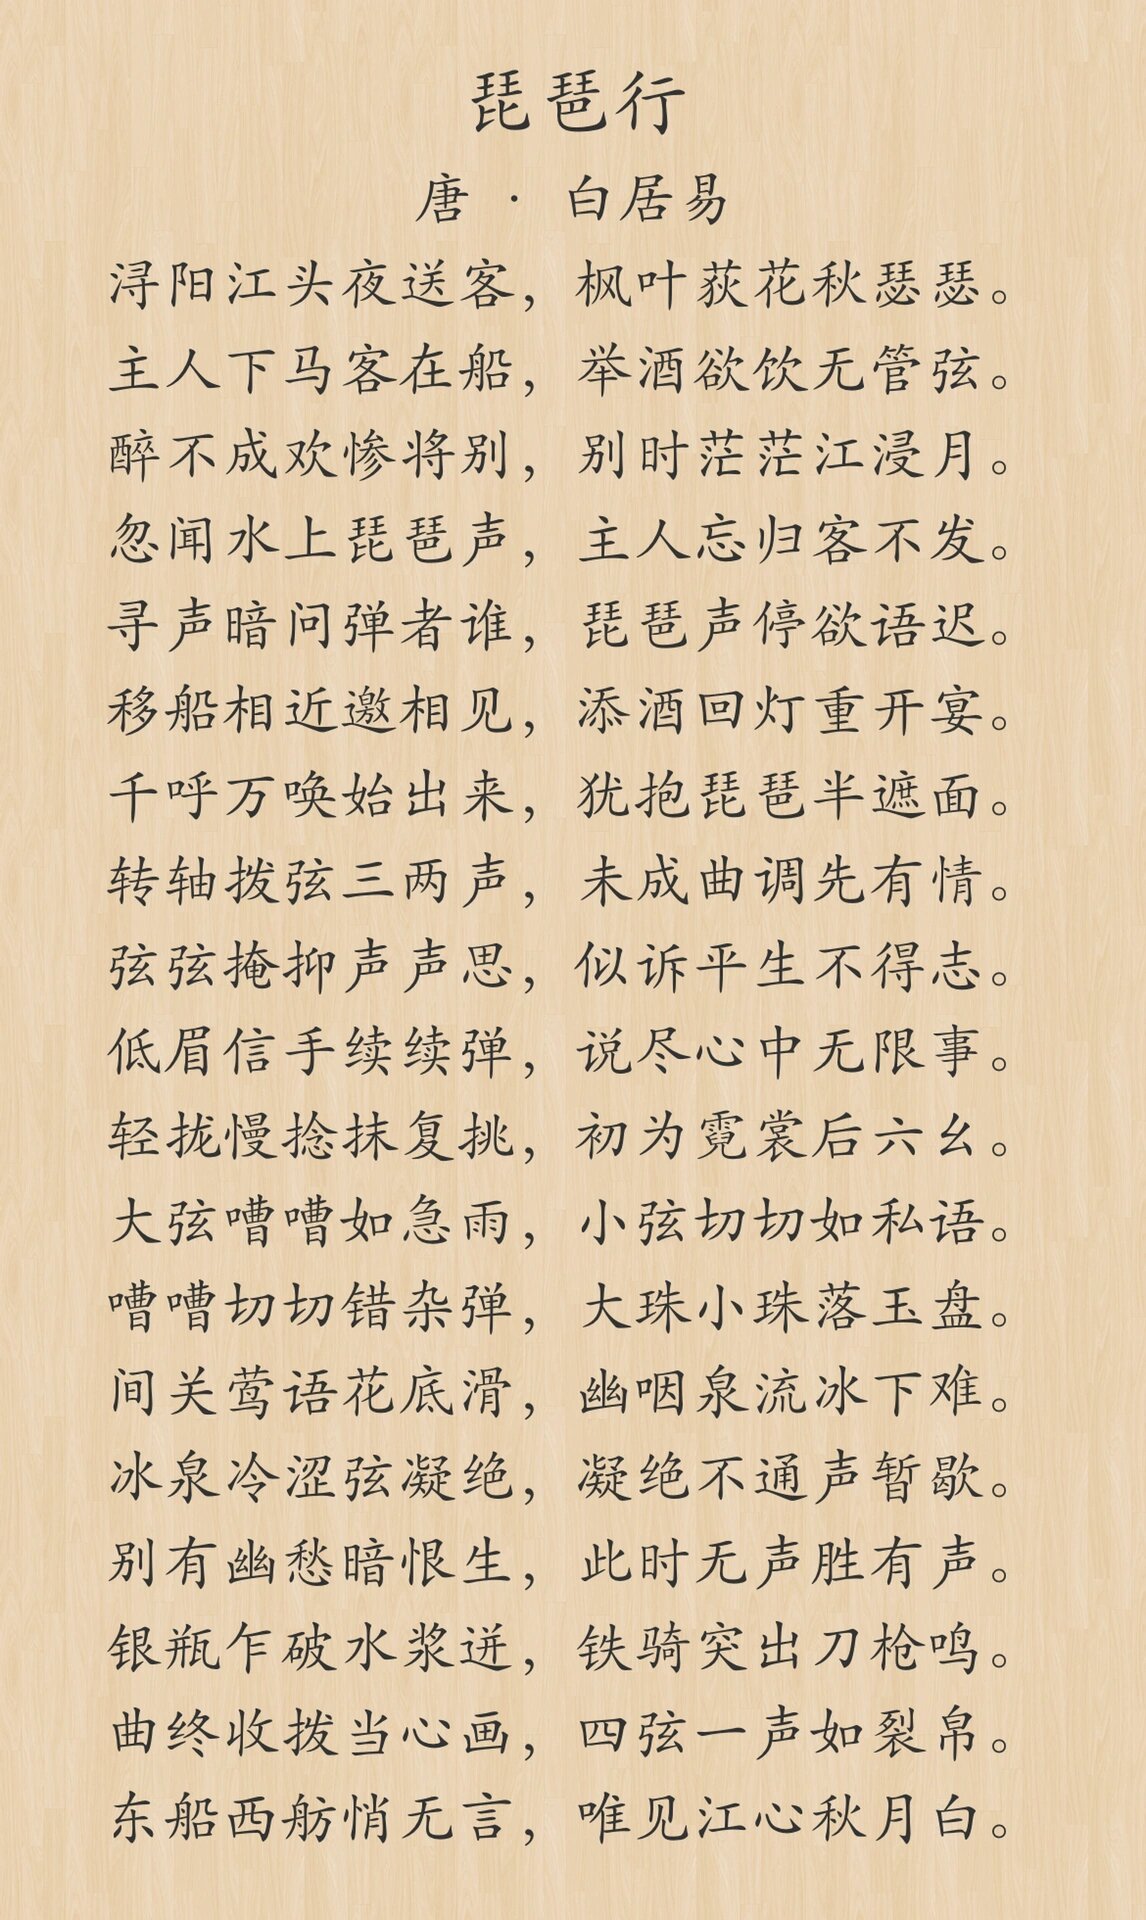 琵琶行
唐 · 白居易
浔阳江头夜送客，枫叶荻花秋瑟瑟。
主人下马客在船，举酒欲饮无管弦。
醉不成欢惨将别，别时茫茫江浸月。
忽闻水上琵琶声，主人忘归客不发。
寻声暗问弹者谁，琵琶声停欲语迟。
移船相近邀相见，添酒回灯重开宴。
千呼万唤始出来，犹抱琵琶半遮面。
转轴拨弦三两声，未成曲调先有情。
弦弦掩抑声声思，似诉平生不得志。
低眉信手续续弹，说尽心中无限事。
轻拢慢捻抹复挑，初为霓裳后六幺。
大弦嘈嘈如急雨，小弦切切如私语。
嘈嘈切切错杂弹，大珠小珠落玉盘。
间关莺语花底滑，幽咽泉流冰下难。
冰泉冷涩弦凝绝，凝绝不通声暂歇。
别有幽愁暗恨生，此时无声胜有声。
银瓶乍破水浆迸，铁骑突出刀枪鸣。
曲终收拨当心画，四弦一声如裂帛。
东船西舫悄无言，唯见江心秋月白。